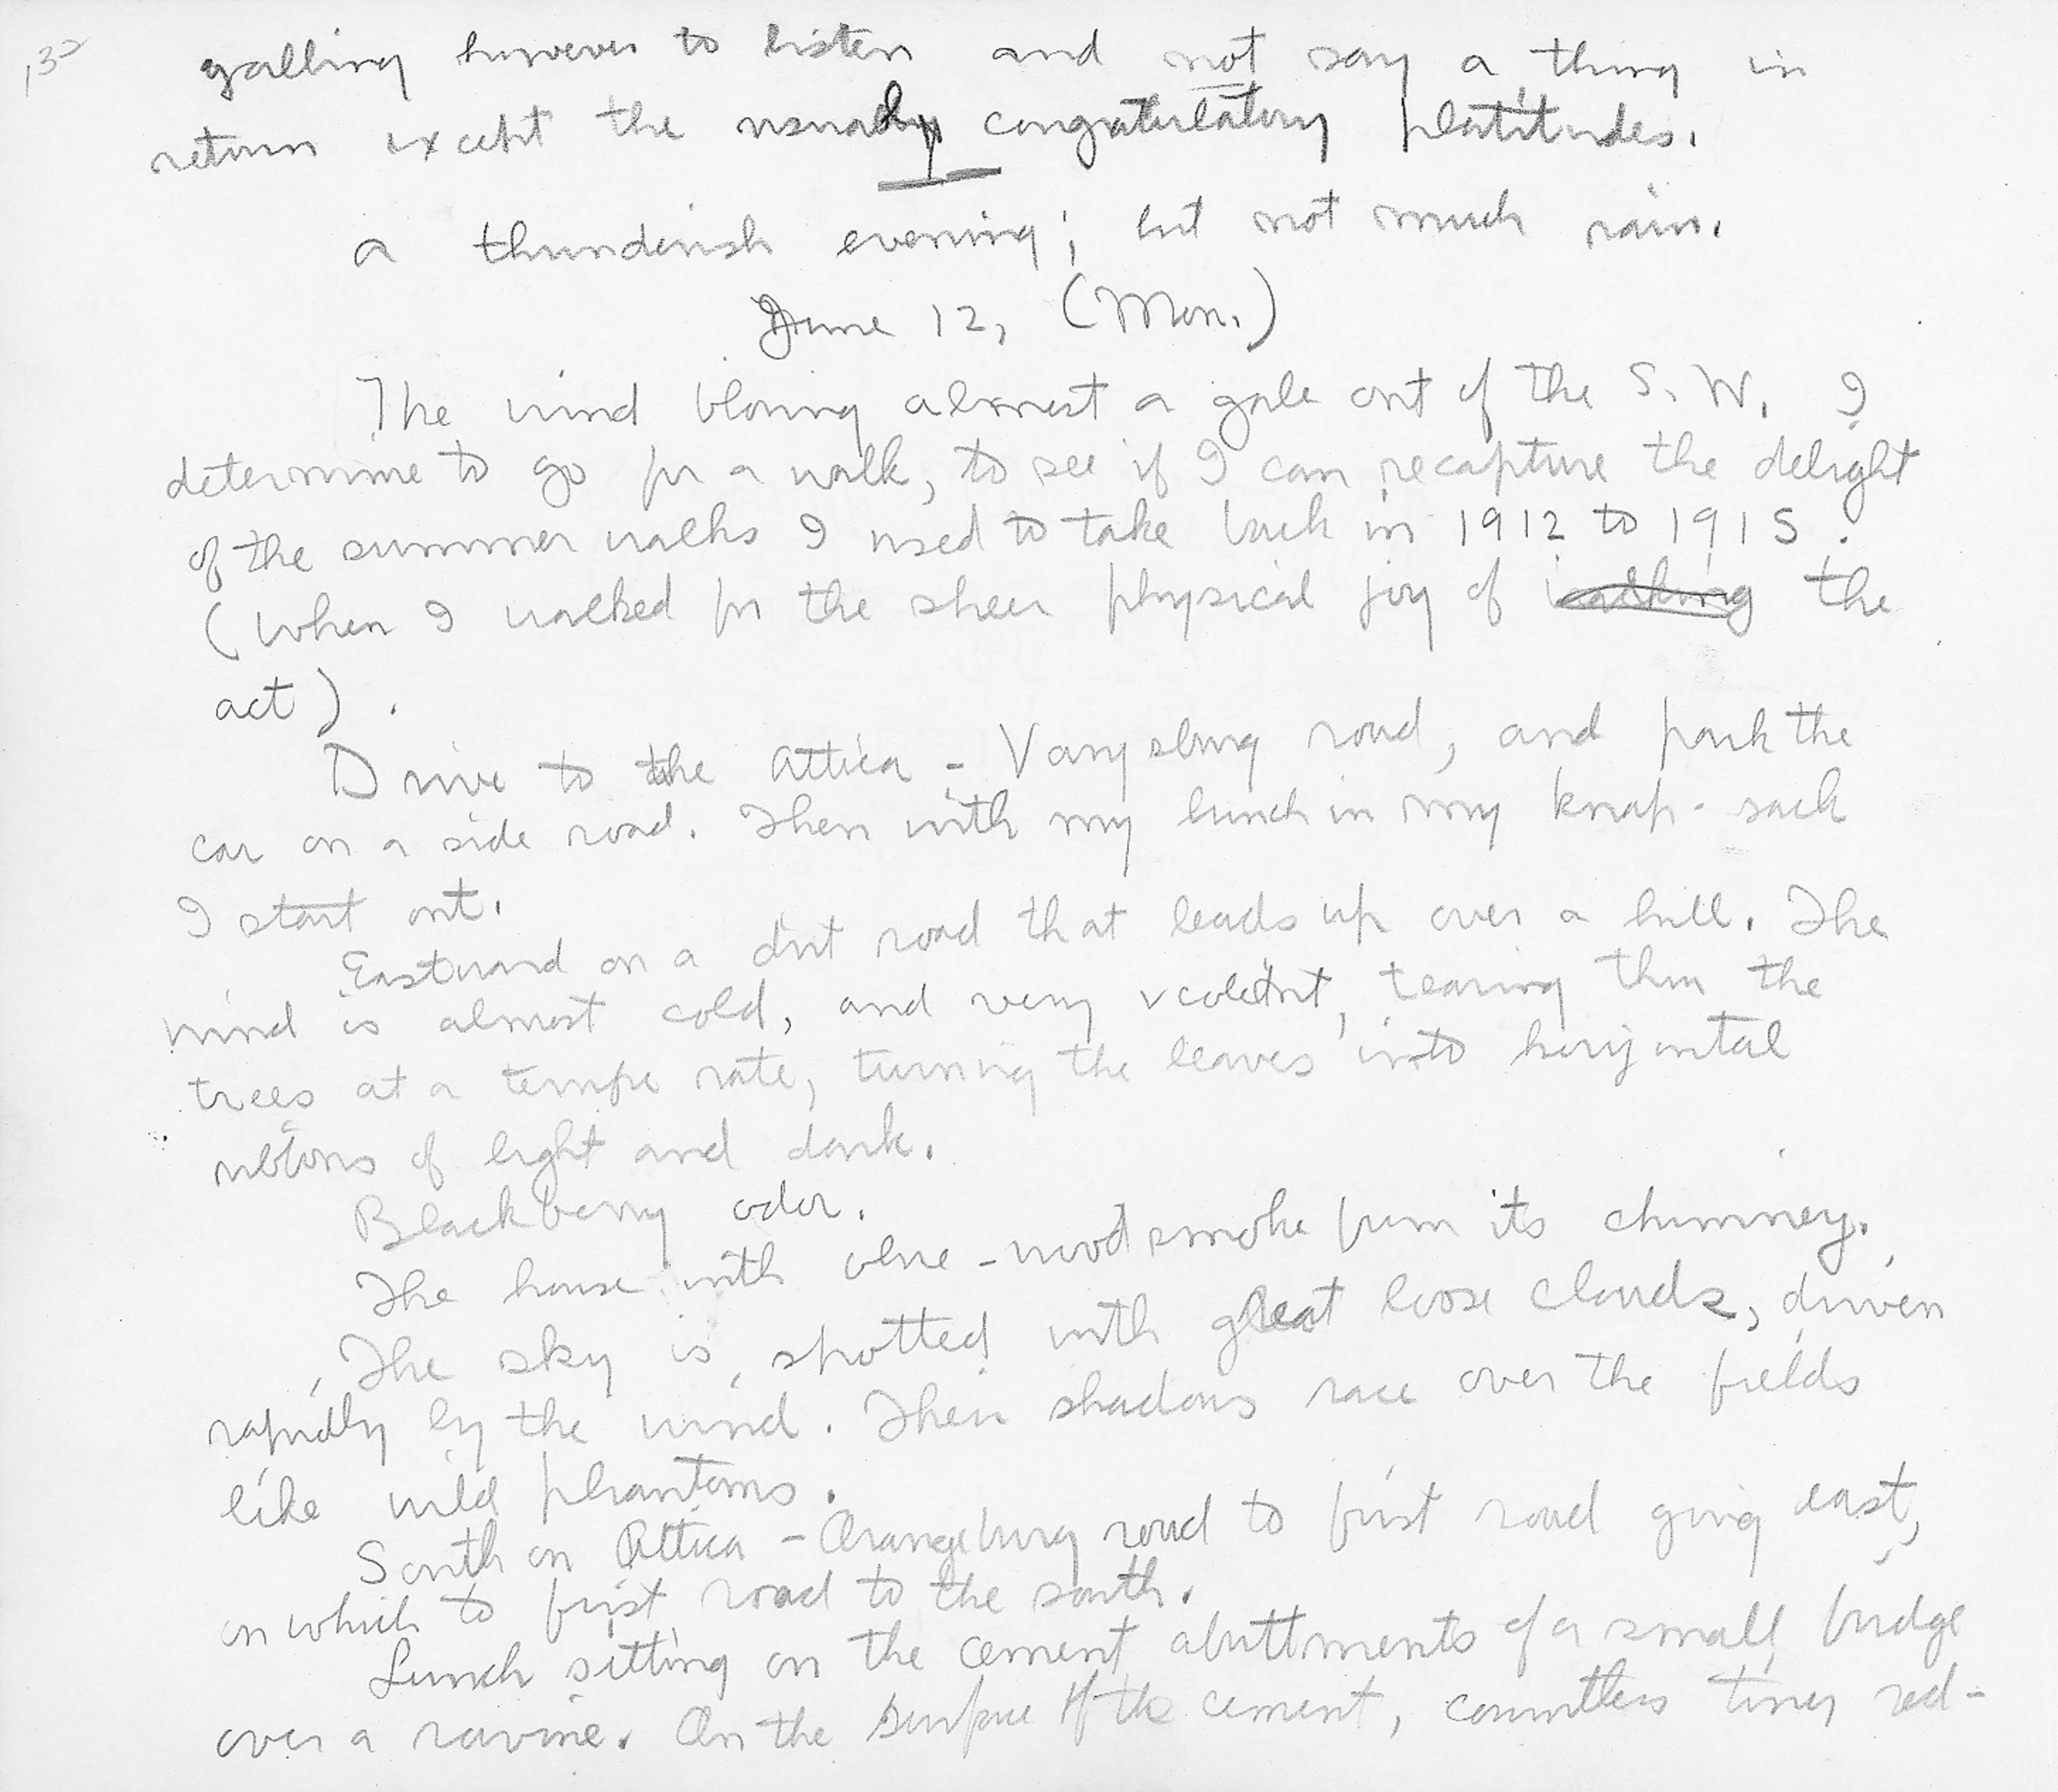 galling however to listen and not say a thing in
return except the usually congratulatory platitudes.
a thunderish evening; but not much rain.
June 12, (Mon.)
The wind blowing almost a gale out of the S.W. I
determine to go for a walk, to see if I can recapture the delight
of the summer walks I used to take back in 1912 to 1915.
(When I walked for the sheer physical joy of walking the
act).
Drive to the Attica - Varysburg road, and park the
car on a side road. Then with my lunch in my knap-sack
I start out.
Eastward on a dirt road that leads up over a hill. The
wind is almost cold, and very tearing thru the
trees at a rate, turning the leaves into horizontal
ribbons of light and dark.
Blackberry odor.
The house with blue-wood smoke from its chimney.
The sky is spotted with great loose clouds, driven
rapidly by the wind. Their shadows race over the fields
like wild phantoms.
South on Attica - Orangeburg road to first road going east,
on which to first road to the south.
Lunch sitting on the cement abuttments of a small bridge
over a ravine. On the surface of the cement, countless tiny red-